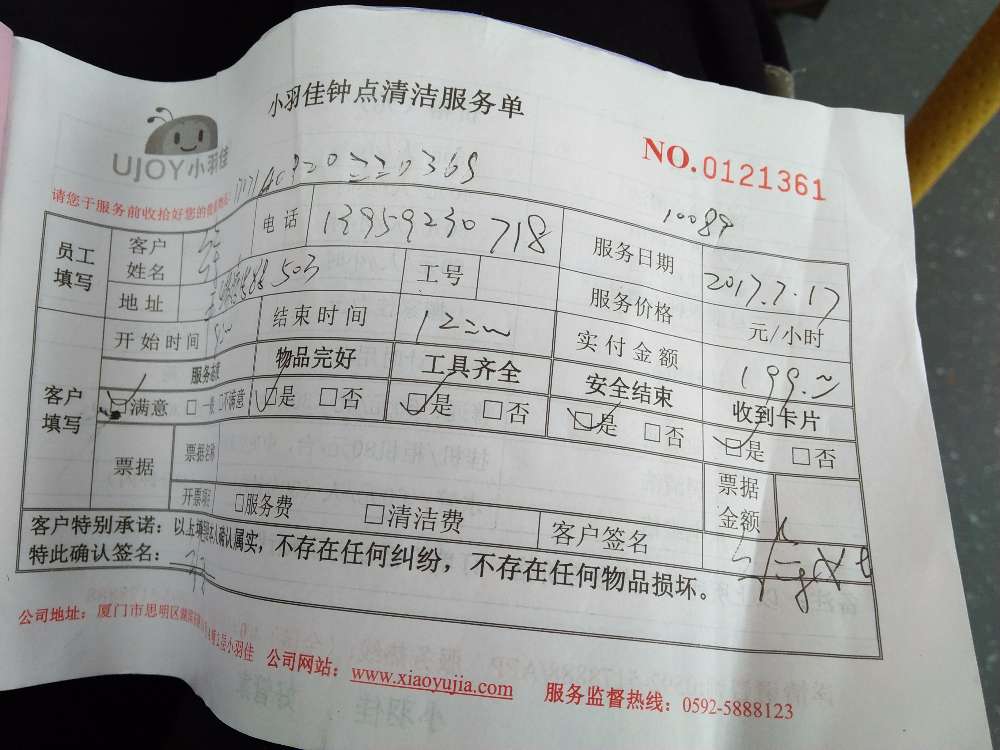 小羽佳钟点清洁服务单
UJOY小羽佳
NO.0121361
请您于服务前收拾好您的
10089
员工填写 客户姓名 电话 13959230718 服务日期 2017.7.17
地址 503 工号 服务价格 元/小时
开始时间 结束时间 12 实付金额 199.
客户填写 服务态度 物品完好 工具齐全 安全结束 收到卡片
□满意 □一般 □不满意 □是 □否 □是 □否 □是 □否 □是 □否
票据 票据名称 票据金额
开票项 □服务费 □清洁费 客户签名
客户特别承诺：以上 本人确认属实，不存在任何纠纷，不存在任何物品损坏。
特此确认签名：
公司地址：厦门市思明区 小羽佳 公司网站：www.xiaoyujia.com 服务监督热线：0592-5888123